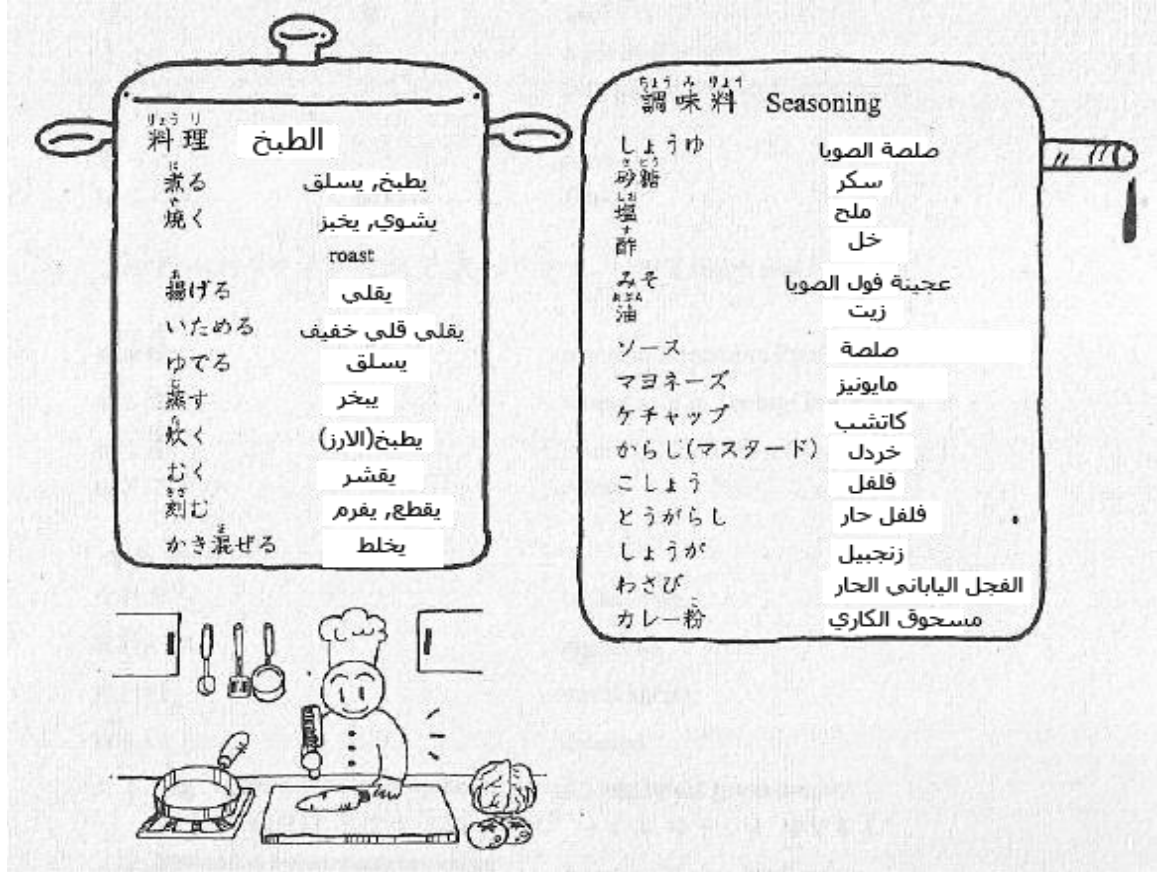 りょう り
料理 الطبخ
に
煮る يطبخ, يسلق
や
焼く يشوي, يخبز
roast
あ
揚げる يقلي
いためる يقلي قلي خفيف
ゆでる يسلق
む
蒸す يبخر
た
炊く يطبخ(الارز)
むく يقشر
きざ
刻む يقطع, يفرم
ま
かき混ぜる يخلط
ちょう み りょう
調味料 Seasoning
しょうゆ صلصة الصويا
さ とう
砂糖 سكر
しお
塩 ملح
す
酢 خل
みそ عجينة فول الصويا
あぶら
油 زيت
ソース صلصة
マヨネーズ مايونيز
ケチャップ كاتشب
からし(マスタード) خردل
こしょう فلفل
とうがらし فلفل حار
しょうが زنجبيل
わさび الفجل الياباني الحار
こ
カレー粉 مسحوق الكاري